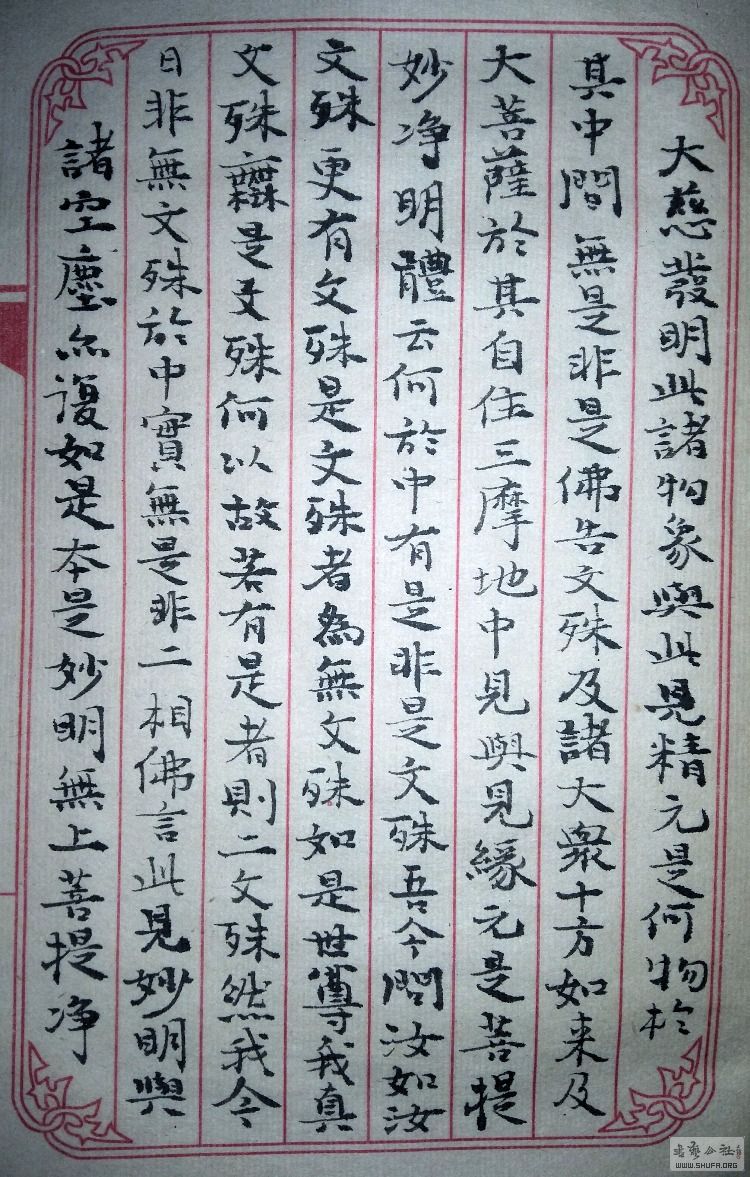 大慈發明此諸物象與此見精元是何物於
其中間無是非是佛告文殊及諸大衆十方如来及
大菩薩於其自住三摩地中見與見緣元是菩提
妙净明體云何於中有是非是文殊吾今問汝如汝
文殊更有文殊是文殊者為無文殊如是世尊我真
文殊無是文殊何以故若有是者則二文殊然我今
日非無文殊於中實無是非二相佛言此見妙明與
諸空塵亦復如是本是妙明無上菩提净
WWW.SHUFA.ORG